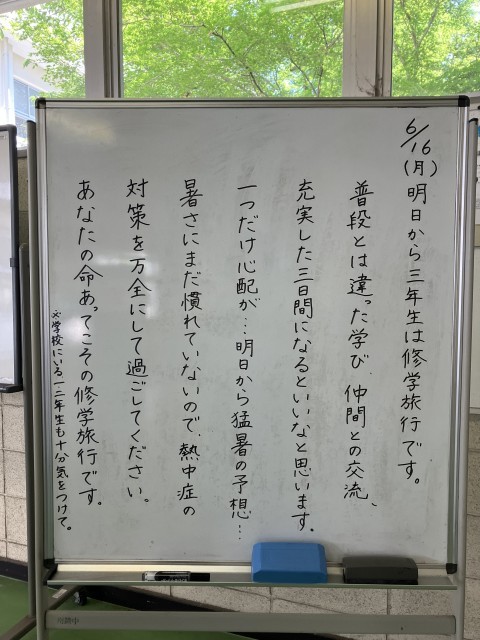 6/16(月)明日から三年生は修学旅行です。
普段とは違った学び、仲間との交流、
充実した三日間になるといいなと思います。
一つだけ心配が…明日から猛暑の予想…
暑さにまだ慣れていないので、熱中症の
対策を万全にして過ごしてください。
あなたの命あってこその修学旅行です。
※学校にいる一二年生も十分気をつけて。